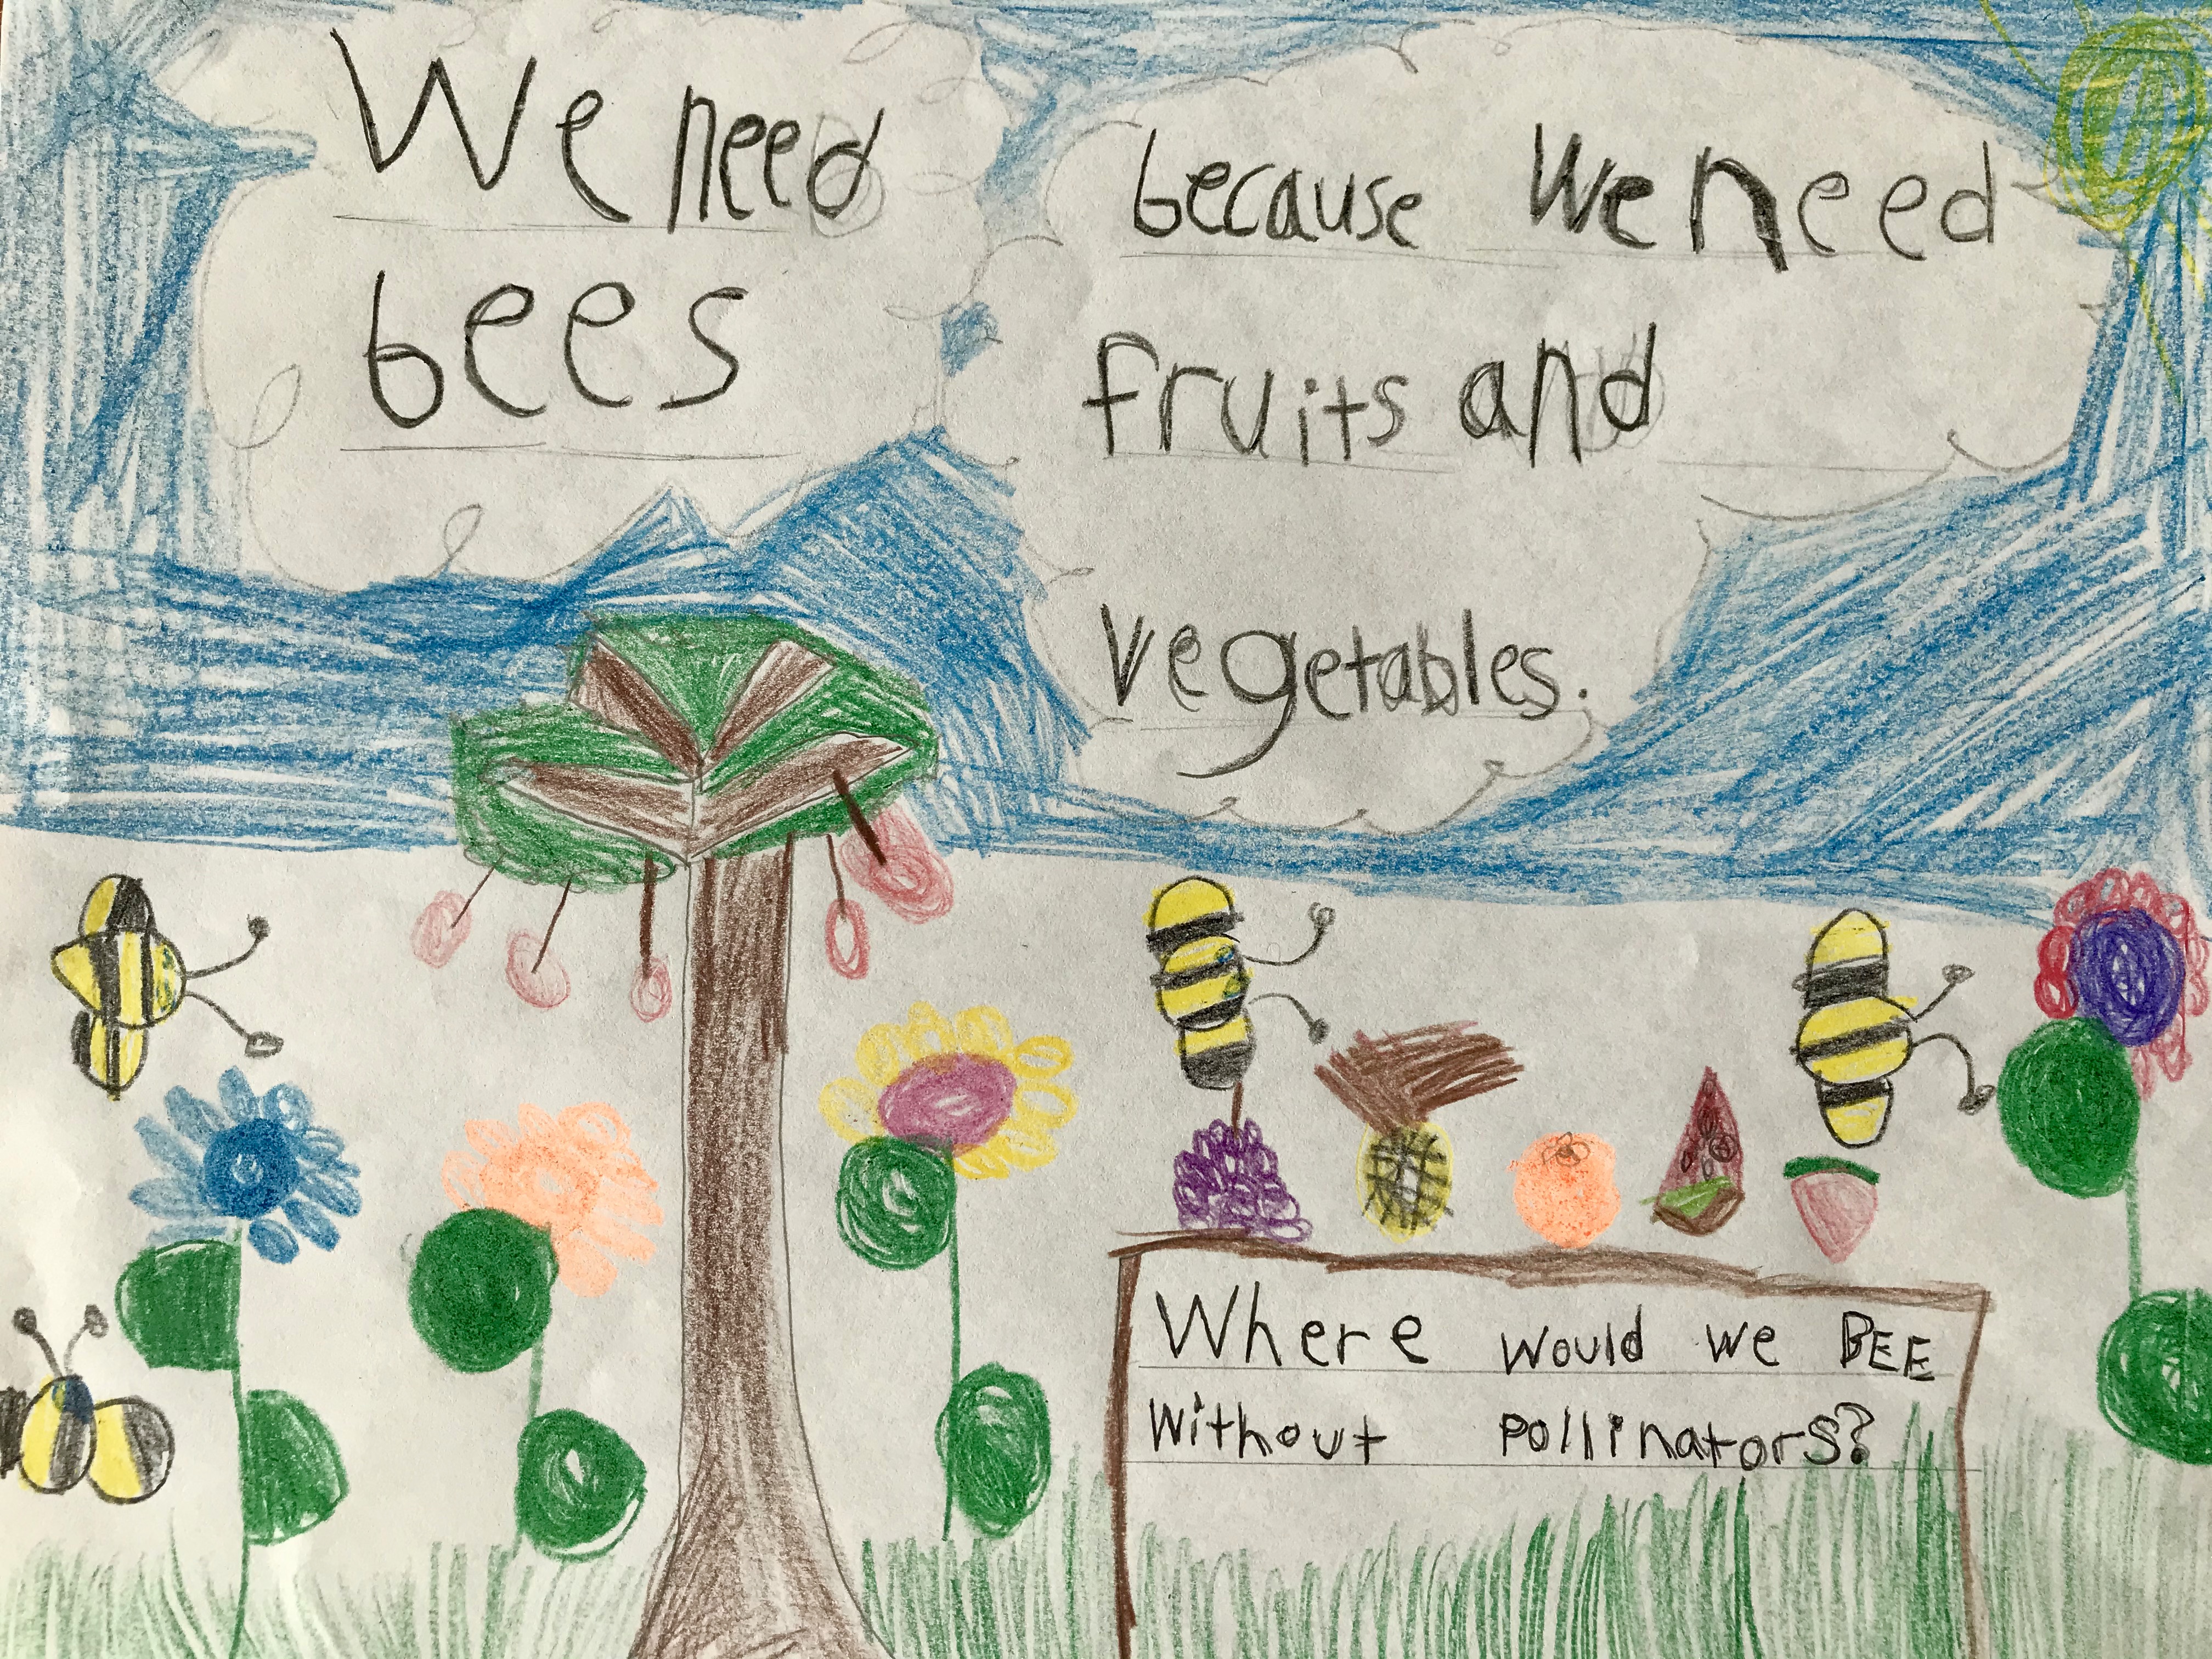 We need
bees
because we need
fruits and
vegetables.
Where would we BEE
without pollinators?